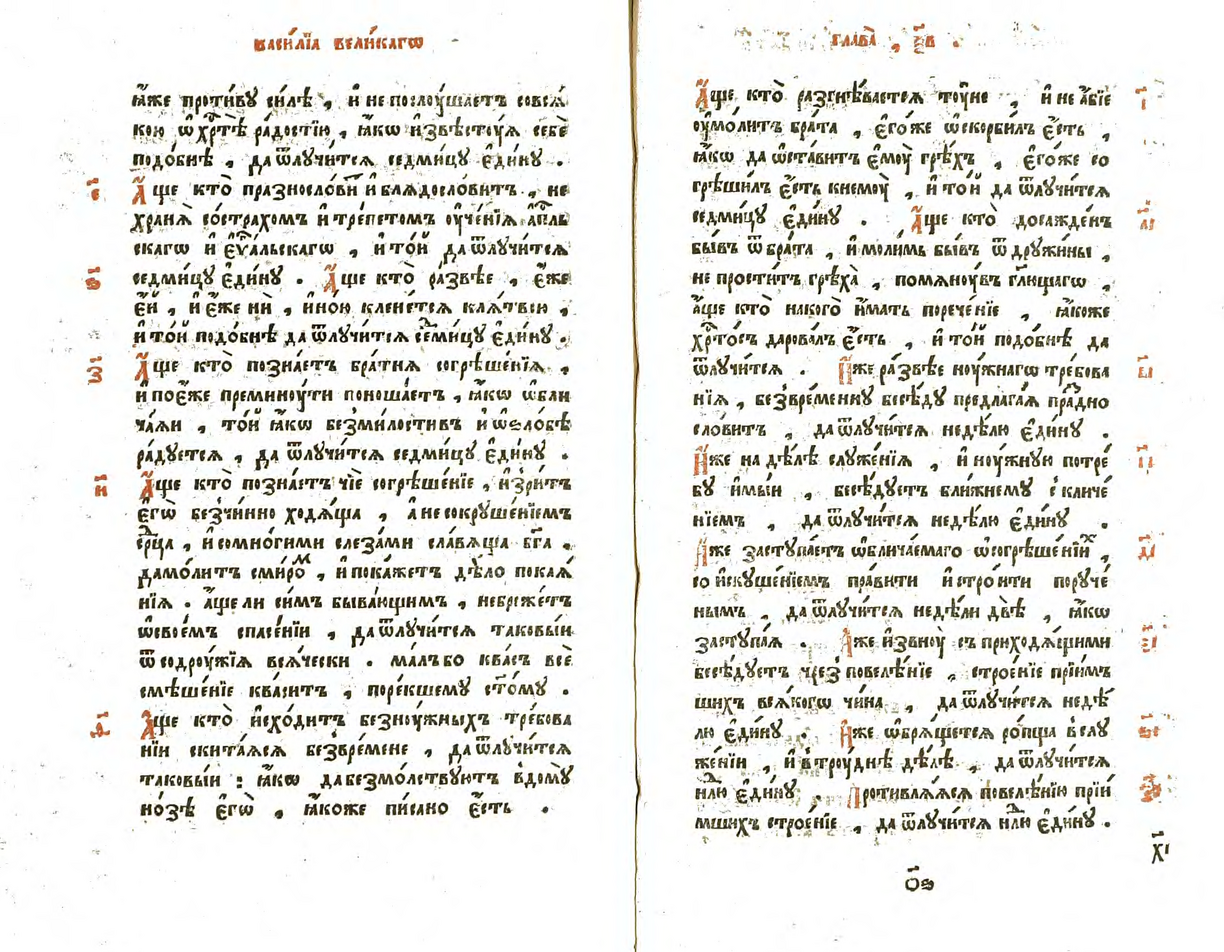 васи́лїа вели́кагѡ
ꙗ҆́же проти́вꙋ си́лѣ , и҆ не послоу́шаетъ совсѧ́
кою ѡ҆ хрⷭ҇тѣ ра́достїю , ꙗ҆́кѡ и҆звѣ́стоуѧ себѐ
подо́бнѣ , да ѿлꙋчи́тсѧ седми́цꙋ є҆ди́нꙋ .
є҃ А҆́ще кто̀ празносло́ви и҆ блѧдосло́витъ , не
хранѧ̀ со́страхомъ и҆ тре́петомъ оу҆че́нїѧ а҆пⷭ҇ль
скагѡ и҆ є҆ѵⷢ҇альскагѡ , и҆ то́й да ѿлꙋчи́тсѧ
ѕ҃ седми́цꙋ є҆ди́нꙋ . А҆́ще кто̀ ра́звѣе , є҆́же
є҆́й , и҆ є҆́же нѝ , и҆но́ю клене́тсѧ клѧ́твою ,
и҆ то́й подо́бнѣ да ѿлꙋчи́тсѧ сеⷣми́цꙋ є҆ди́нꙋ .
з҃ А҆́ще кто̀ позна́етъ бра́тнѧ согрѣше́нїѧ ,
и҆ пое҆́же преминоу́ти поноша́етъ , ꙗ҆́кѡ ѡ҆бли
ча́ѧи , то́й ꙗ҆́кѡ безми́лостивъ и҆ ѡ҆ѕло́бѣ
ра́дꙋетсѧ , да ѿлꙋчи́тсѧ седми́цꙋ є҆ди́нꙋ .
и҃ А҆́ще кто̀ позна́етъ чїѐ согрѣше́нїе , и҆ зри́тъ
є҆гѡ̀ безчи́нно ходѧ́ща , а҆ не сокрꙋше́нїемъ
срⷣца , и҆ сомно́гими слеза́ми сла́вѧща бг҃а .
дамо́литъ смироⷨ , и҆ пока́жетъ дѣ́ло покаѧ́
нїѧ . а҆́ще ли си́мъ быва́ющимъ , небреже́тъ
ѡ҆свое́мъ спасе́нїи , да ѿлꙋчи́тсѧ таковы́и
ѿ содроу́жїѧ всѧ́чески . ма́лъ бо ква́съ всѐ
смѣше́нїе ква́ситъ , поре́кшемꙋ ст҃о́мꙋ .
ѳ҃ А҆́ще кто̀ и҆схо́дитъ безноу́жныхъ тре́бова
нїи скита́ѧсѧ безвре́мене , да ѿлꙋчи́тсѧ
таковы́и : ꙗ҆́кѡ да безмо́лствꙋютъ в дому̀
но́зѣ є҆гѡ̀ , ꙗ҆́коже пи́сано є҆́сть .
глава̀ , ѯ҃в .
і҃ А҆́ще кто̀ разгнѣ́ваетсѧ тоу́не , и҆ не а҆́бїе
оу҆мо́литъ бра́та , є҆го́же ѡ҆скорби́лъ є҆́сть ,
ꙗ҆́кѡ да ѡ҆ста́витъ є҆моу̀ грѣ́хъ , є҆го́же со
грѣши́лъ є҆́сть кнемоу̀ , и҆ то́й да ѿлꙋчи́тсѧ
а҃і седми́цꙋ є҆ди́нꙋ . А҆́ще кто̀ досажде́нъ
бы́въ ѿ бра́та , и҆ моли́мь бы́въ ѿ дрꙋжи́ны ,
не прости́тъ грѣха̀ , помѧноу́въ гл҃ющагѡ ,
а҆́ще кто̀ на кого̀ и҆́мать порече́нїе , ꙗ҆́коже
хрⷭ҇то́съ дарова́лъ є҆́сть , и҆ то́й подо́бнѣ да
в҃і ѿлꙋчи́тсѧ . И҆́же ра́звѣе ноу́жнагѡ тре́бова
нїѧ , безвре́меннꙋ бесѣ́дꙋ предлага́ѧ пра́ⷥдно
сло́витъ , да ѿлꙋчи́тсѧ недѣ́лю є҆ди́нꙋ .
г҃і И҆́же на дѣ́лѣ слꙋже́нїѧ , и҆ ноу́жнꙋю потре́
бꙋ и҆мы́и , бесѣ́дꙋетъ бли́жнемꙋ с̾ кличе́
нїемъ , да ѿлꙋчи́тсѧ недѣ́лю є҆ди́нꙋ .
д҃і И҆́же застꙋпа́етъ ѡ҆блича́емаго ѡ҆согрѣше́нїиⷯ ,
со и҆скꙋше́нїемъ пра́вити и҆ стро́ити порꙋче́
нымъ , да ѿлꙋчи́тсѧ недѣ́ли двѣ̀ , ꙗ҆́кѡ
є҃і застꙋпа́ѧ . И҆́же и҆звноу̀ съ приходѧ́щими
бесѣ́дꙋетъ чре́з повелѣ́нїе , строе́нїе прїи́мъ
шихъ всѧ́когѡ чи́на , да ѿлꙋчи́тсѧ недѣ́
ѕ҃і лю є҆ди́нꙋ . И҆́же ѡ҆брѧ́щетсѧ ро́пща в слꙋ
же́нїи , и҆ в троу́днѣ дѣ́лѣ , да ѿлꙋчи́тсѧ
з҃і нⷣлю є҆ди́нꙋ . Противлѧ́ѧсѧ повелѣ́нїю прїи́
мшихъ строе́нїе , да ѿлꙋчи́тсѧ нⷣлю є҆ди́нꙋ .
о҃ѕ